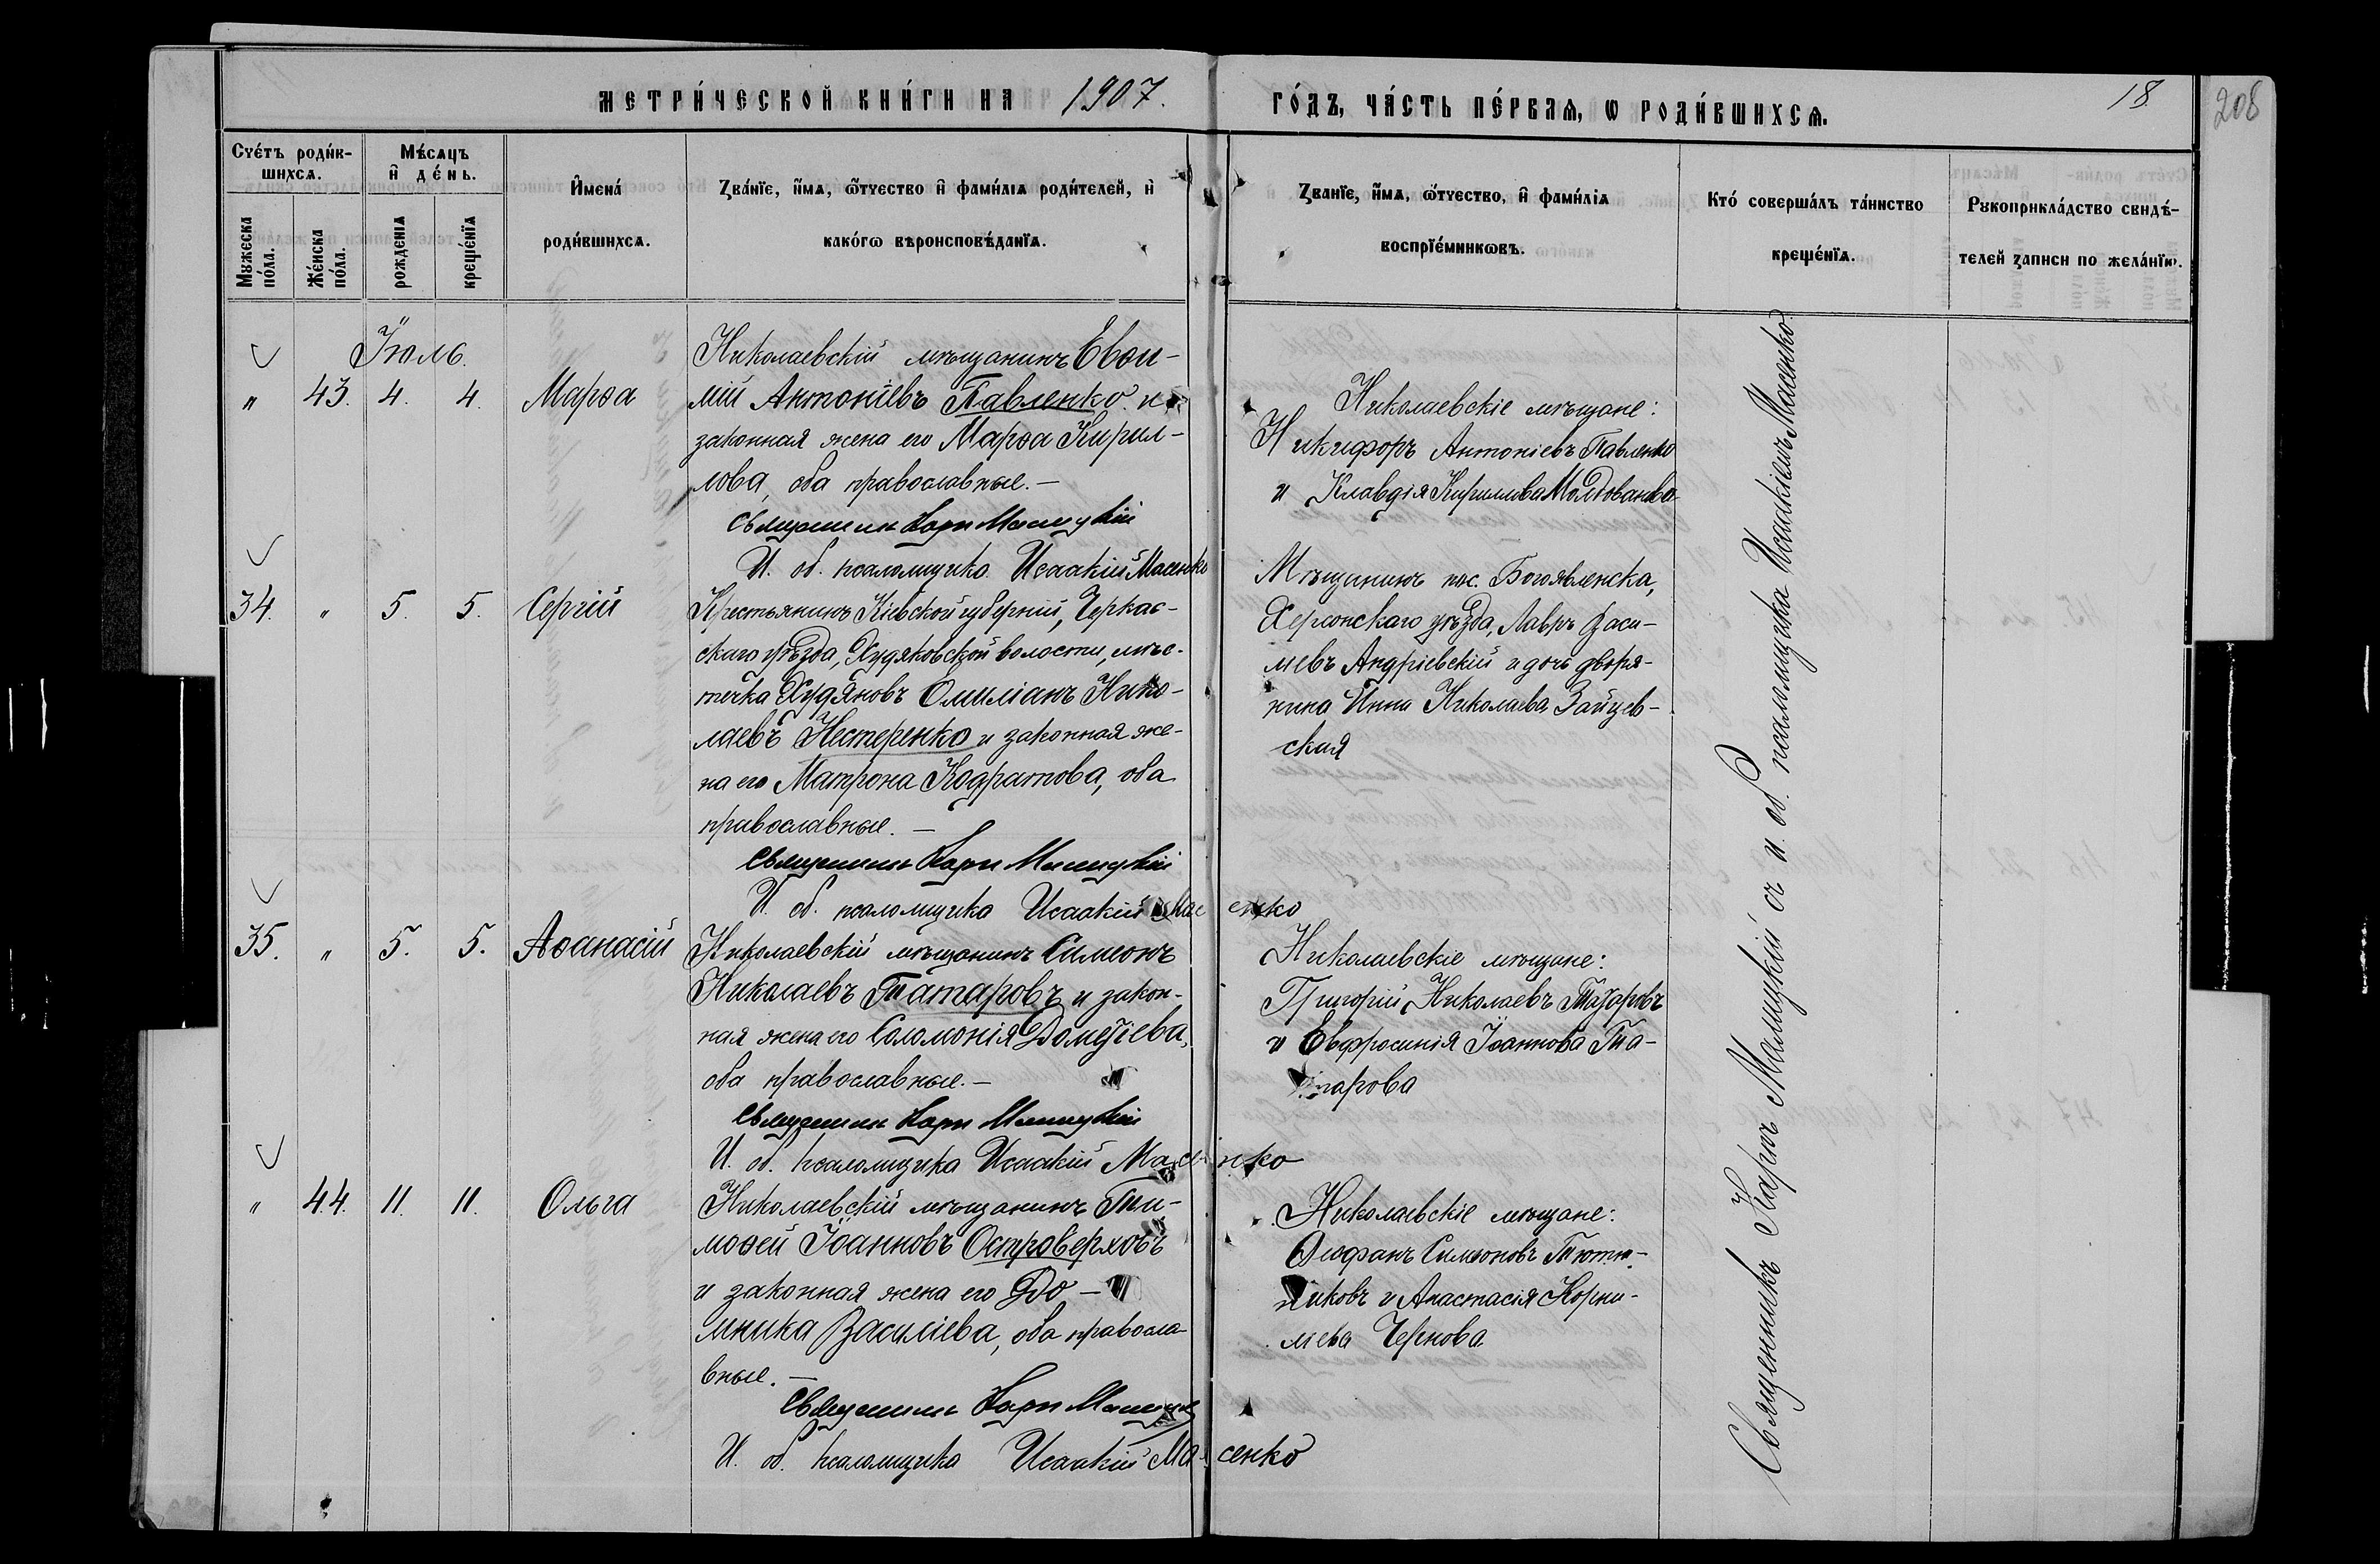 МЕТРИ́ЧЕСКОЙ КНИ́ГИ НА 1907.
ГО́ДЪ, ЧА́СТЬ ПЕ́РВАѦ, Ѡ РОДИ́ВШИХСѦ.
18
208
Сче́тъ роди́в-
шихсѧ.
Мꙋжеска
по́ла.
Же́нска
по́ла.
Мѣ́сѧцъ
и҆ де́нь.
рожде́нїѧ
креще́нїѧ
И҆мена́
роди́вшихсѧ.
Зва́нїе, и҆́мѧ, ѻ҆́тчество и҆ фами́лїѧ роди́телей, и҆
како́гѡ вѣроисповѣ́данїѧ.
Зва́нїе, и҆́мѧ, ѻ҆́тчество, и҆ фами́лїѧ
воспрїе́мникѡвъ.
Кто́ соверша́лъ та́инство
креще́нїѧ.
Рꙋкоприкла́дство свидѣ́-
телей записи по жела́нїю.
Іюль.
" 43. 4. 4. Марѳа
Николаевскій мѣщанинъ Евѳи-
мій Антоніевъ Павленко и
законная жена его Марѳа Кирил-
лова, оба православные.—
Священникъ Карпъ Малицкій
И. об. псаломщика Исаакій Масенко
Николаевскіе мѣщане:
Никифоръ Антоніевъ Павленко
и Клавдія Кириллова Молдованова
34. " 5. 5. Сергій
Крестьянинъ Кіевской губерніи, Черкас-
скаго уѣзда, Худяковской волости, мѣс-
течка Худяковъ Омиліанъ Нико-
лаевъ Нестеренко и законная же-
на его Матрона Кодратова, оба
православные.—
Священникъ Карпъ Малицкій
И. об. псаломщика Исаакій Масенко
Мѣщанинъ пос. Богоявленска,
Херсонскаго уѣзда, Лавръ Васи-
лієвъ Андріевскій и дочь дворя-
нина Инна Николаева Зайцев-
ская
35. " 5. 5. Аѳанасій
Николаевскій мѣщанинъ Симеонъ
Николаевъ Татаровъ и закон-
ная жена его Соломонія Дометіева,
оба православные.—
Священникъ Карпъ Малицкій
И. об. псаломщика Исаакій Масенко
Николаевскіе мѣщане:
Григорій Николаевъ Татаровъ
и Евфросинія Іоаннова Та-
тарова
" 44. 11. 11. Ольга
Николаевскій мѣщанинъ Ти-
моѳей Іоанновъ Островерховъ
и законная жена его До-
мника Василіева, оба правосла-
вные.—
Священникъ Карпъ Малицкій
И. об. псаломщика Исаакій Масенко
Николаевскіе мѣщане:
Ѳеофанъ Симеоновъ Тютю-
никовъ и Анастасія Корни-
ліева Чернова
Священникъ Карпъ Малицкій съ и. об. псаломщика Исаакіемъ Масенко